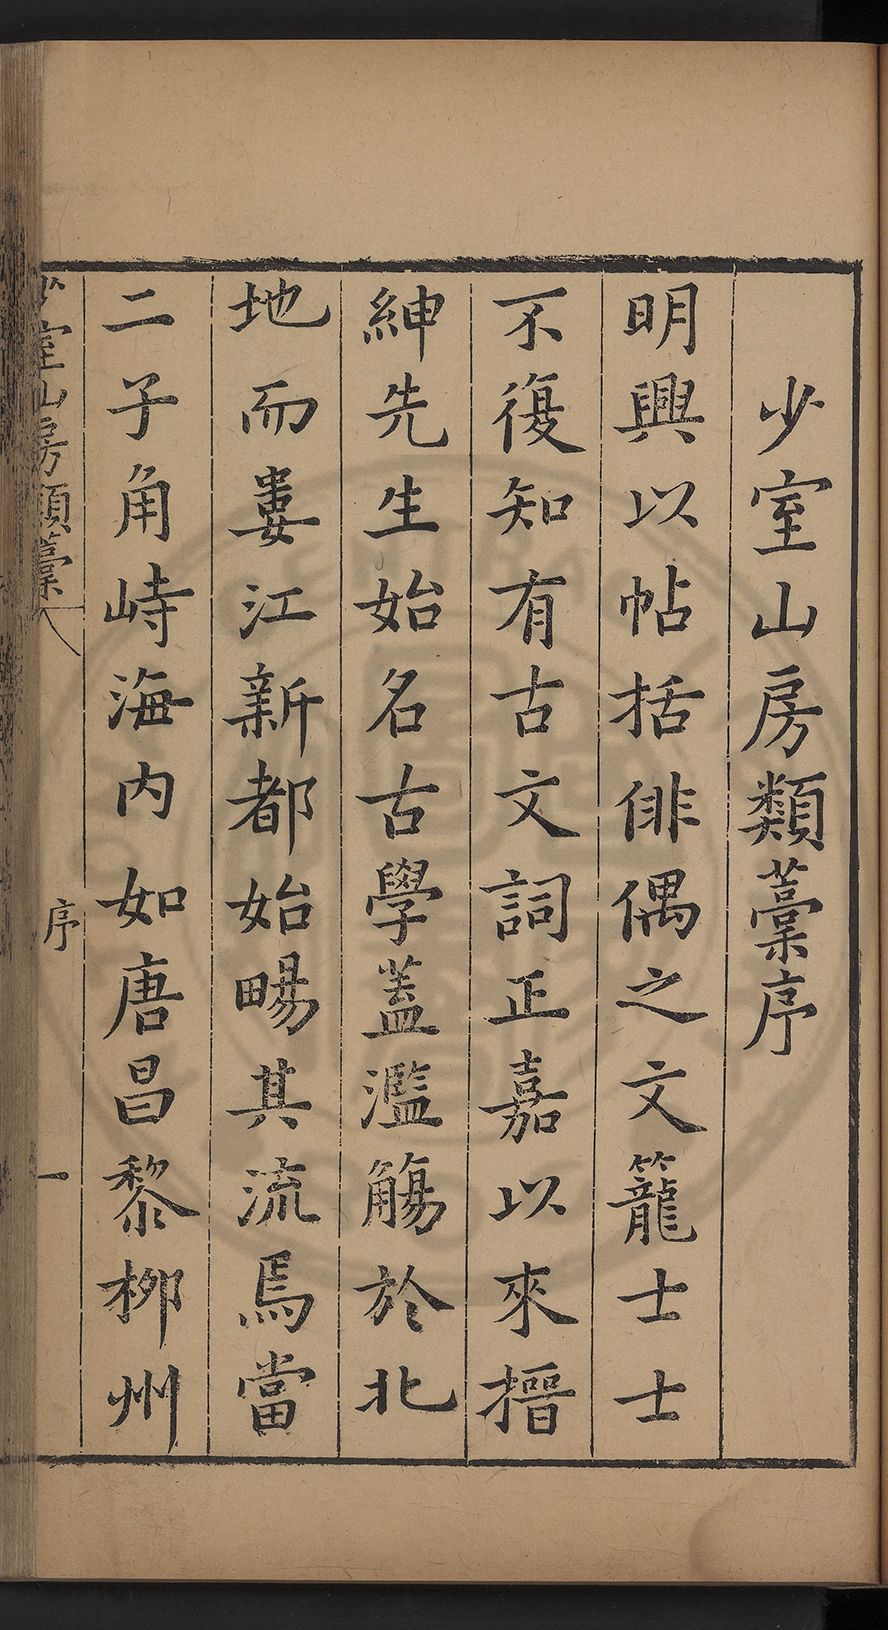 少室山房類藁序
明興以帖括俳偶之文籠士士
不復知有古文詞正嘉以來搢
紳先生始名古學蓋濫觴於北
地而婁江新都始暢其流焉當
二子角峙海内如唐昌黎柳州
少室山房類藁
序
一